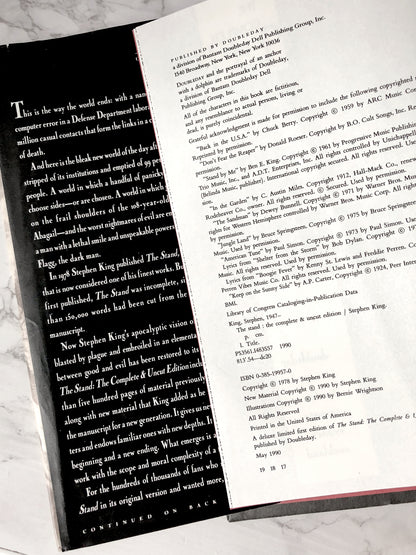 This is the way the world ends: with a nan
computer error in a Defense Department labora
million casual contacts that form the links in a c
of death.
And here is the bleak new world of the day aft
stripped of its institutions and emptied of 99 pe
people. A world in which a handful of panicky
choose sides—or are chosen. A world in which
on the frail shoulders of the 108-year-old
Abagail—and the worst nightmares of evil are em
a man with a lethal smile and unspeakable powers
Flagg, the dark man.
In 1978 Stephen King published The Stand,
that is now considered one of his finest works. B
first published, The Stand was incomplete, si
than 150,000 words had been cut from the
manuscript.
Now Stephen King's apocalyptic vision o
blasted by plague and embroiled in an elementa
between good and evil has been restored to its
The Stand: The Complete & Uncut Edition inclu
than five hundred pages of material previously
along with new material that King added as he
the manuscript for a new generation. It gives us ne
ters and endows familiar ones with new depths. It
beginning and a new ending. What emerges is a
work with the scope and moral complexity of a
For the hundreds of thousands of fans who
Stand in its original version and wanted more,
CONTINUED ON BACK
PUBLISHED BY DOUBLEDAY
a division of Bantam Doubleday Dell Publishing Group, Inc.
1540 Broadway, New York, New York 10036
DOUBLEDAY and the portrayal of an anchor
with a dolphin are trademarks of Doubleday,
a division of Bantam Doubleday Dell
Publishing Group, Inc.
All of the characters in this book are fictitious,
and any resemblance to actual persons, living or
dead, is purely coincidental.
Grateful acknowledgment is made for permission to include the following copyrighted
"Back in the U.S.A." by Chuck Berry. Copyright © 1959 by ARC Music Corp
Reprinted by permission.
"Don't Fear the Reaper" by Donald Roeser. Copyright by B.O. Cult Songs, Inc. R
by permission.
"Stand by Me" by Ben E. King. Copyright © 1961 by Progressive Music Publishing
Trio Music, Inc., and A.D.T. Enterprises, Inc. All rights controlled by
(Belinda Music, publisher). International copyright secured. All rights reserved. Use
permission.
"In the Garden" by C. Austin Miles. Copyright 1912, Hall-Mack Co., renewed
Rodeheaver Co., owner. All rights reserved. Used by permission.
"The Sandman" by Dewey Bunnell. Copyright © 1971 by Warner Bros. Music
rights for Western Hemisphere controlled by Warner Bros. Music Corp. All rights
by permission.
"Jungle Land" by Bruce Springsteen. Copyright © 1975 by Bruce Springsteen,
Music. Used by permission.
"American Tune" by Paul Simon. Copyright © 1973 by Paul Simon. Used
Lyrics from "Shelter from the Storm" by Bob Dylan. Copyright © 1974,
Music. All rights reserved. Used by permission.
Lyrics from "Boogie Fever" by Kenny St. Lewis and Freddie Perren. Copyright
Perren Vibes Music Co. All rights reserved. Used by permission.
"Keep on the Sunny Side" by A.P. Carter, Copyright © 1924, Peer Inter
BMI.
Library of Congress Cataloging-in-Publication Data
King, Stephen, 1947–
The stand : the complete & uncut edition / Stephen King.
p. cm.
I. Title.
PS3561.I483S57 1990
813'.54—dc20
ISBN 0-385-19957-0
Copyright © 1978 by Stephen King
New Material Copyright © 1990 by Stephen King
Illustrations Copyright © 1990 by Bernie Wrightson
All Rights Reserved
Printed in the United States of America
A deluxe limited first edition of The Stand: The Complete & U
published by Doubleday.
May 1990
19 18 17